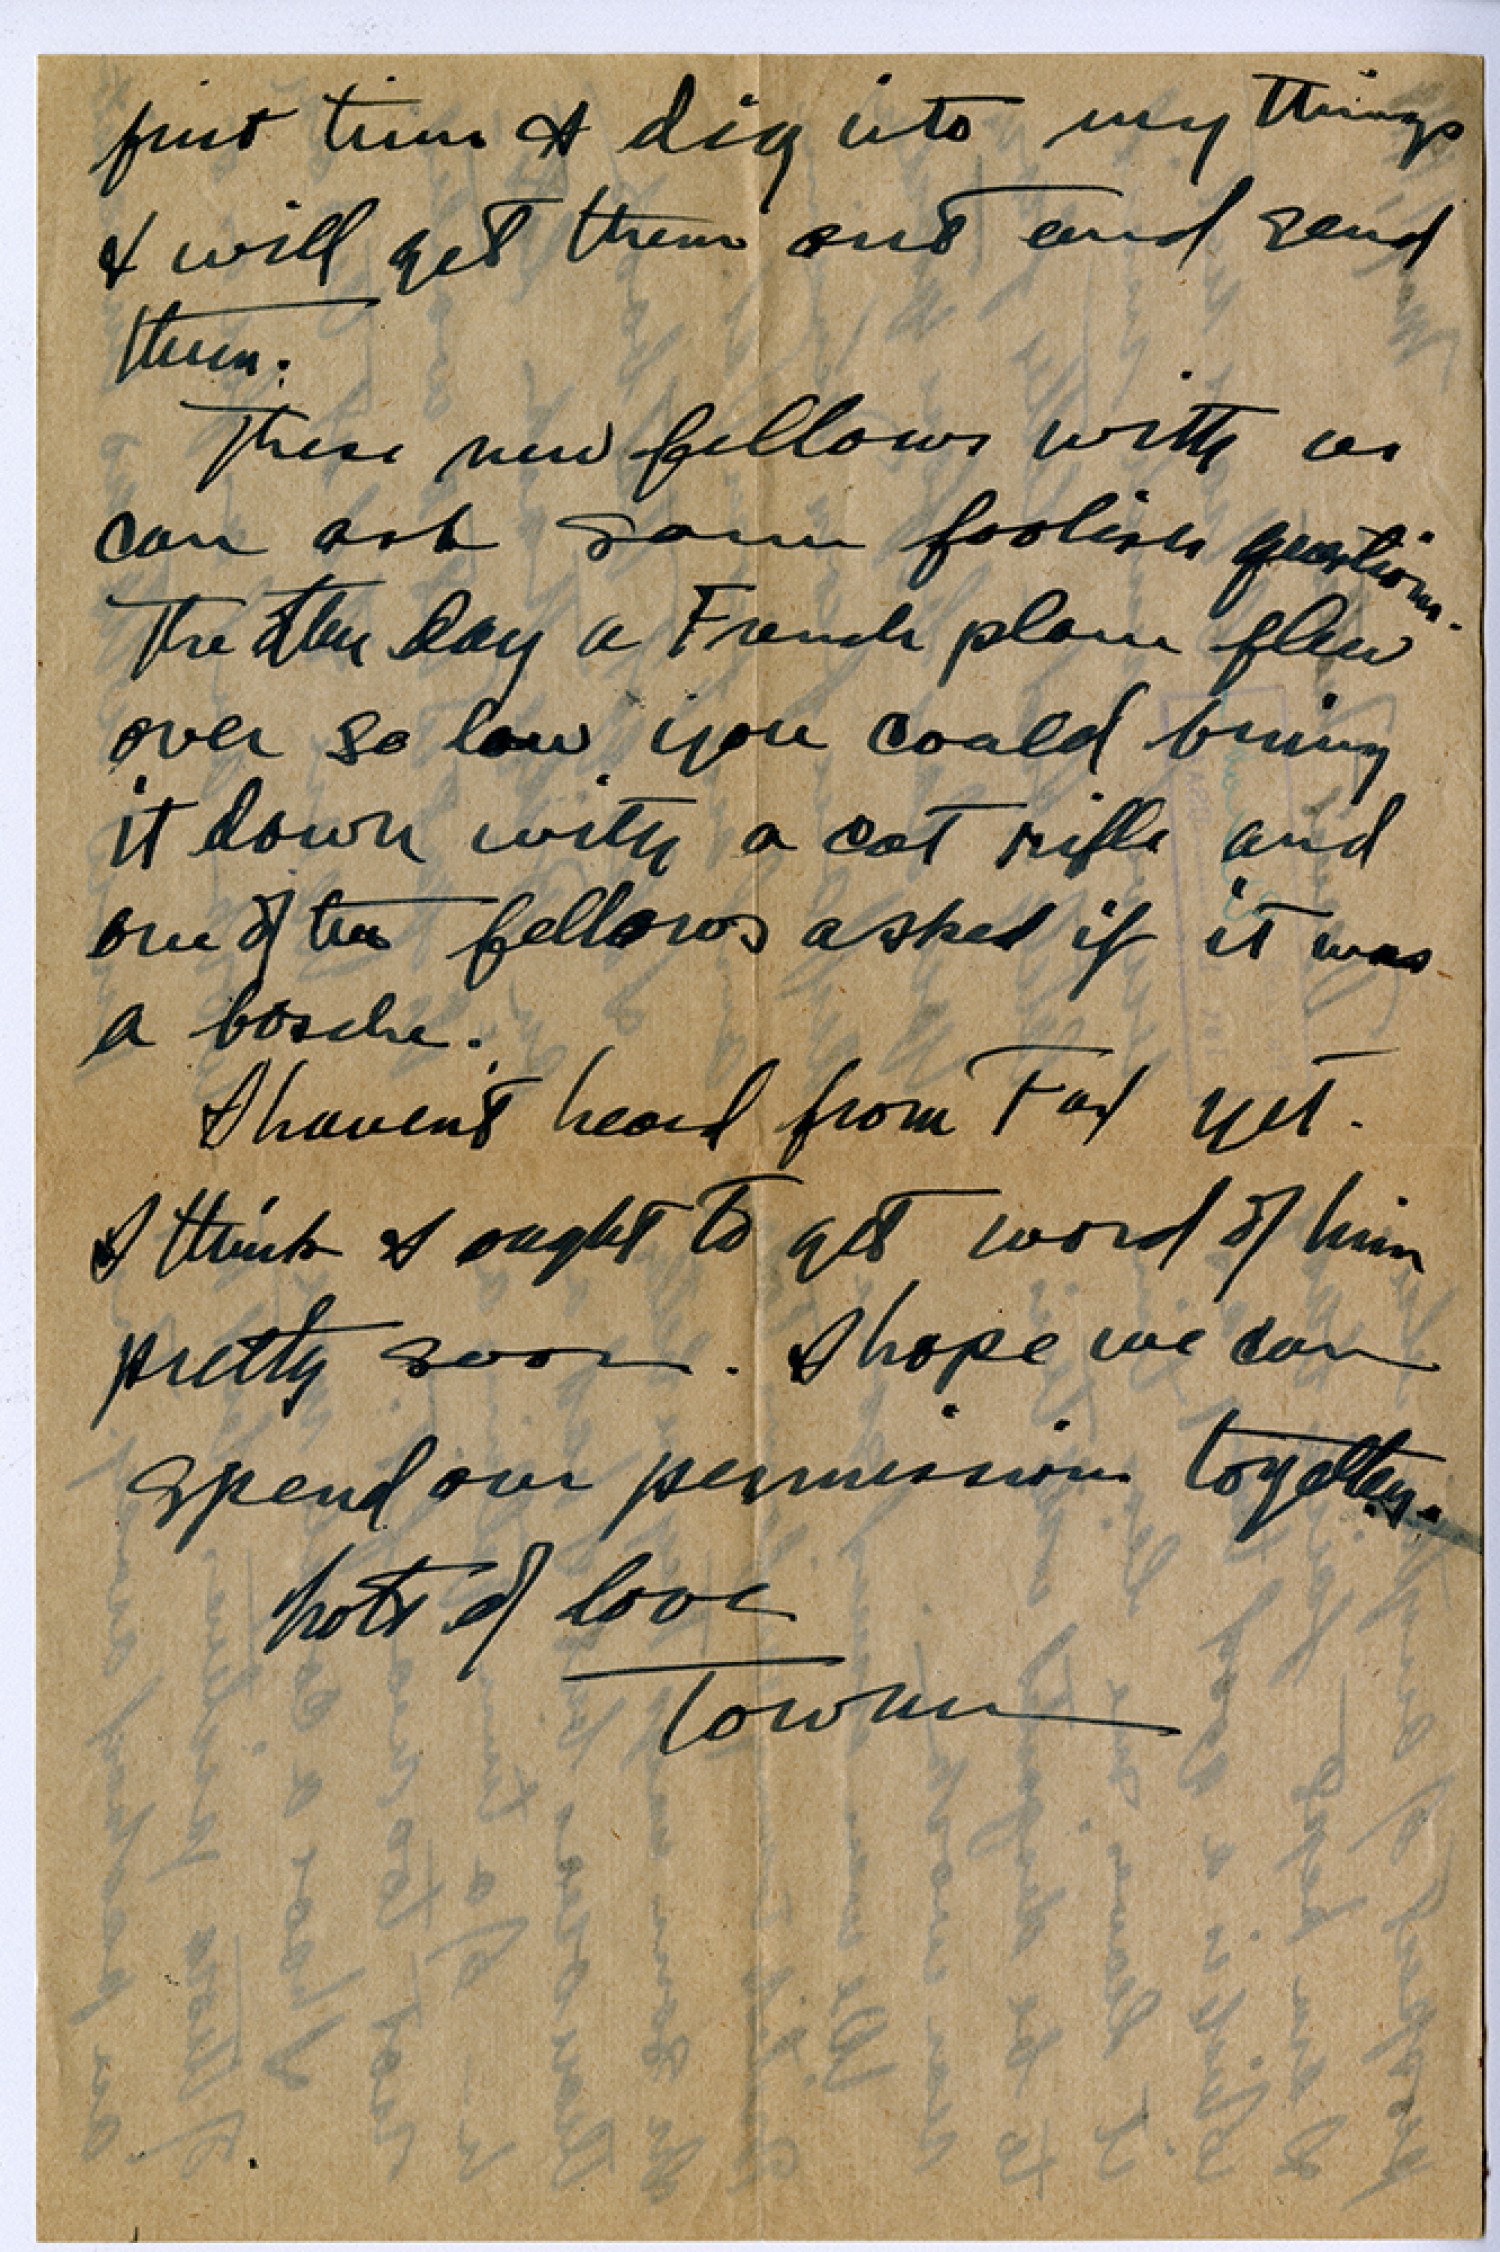 first time I dig into my things
I will get them out and send
them.
These new fellows with us
can ask some foolish questions.
The other day a French plane flew
over so low you could bring
it down with a cat rifle and
one of the fellows asked if it was
a bosche.
I haven't heard from Fat yet.
I think I ought to get word of him
pretty soon. I hope we can
spend our permission together.
Lots of love